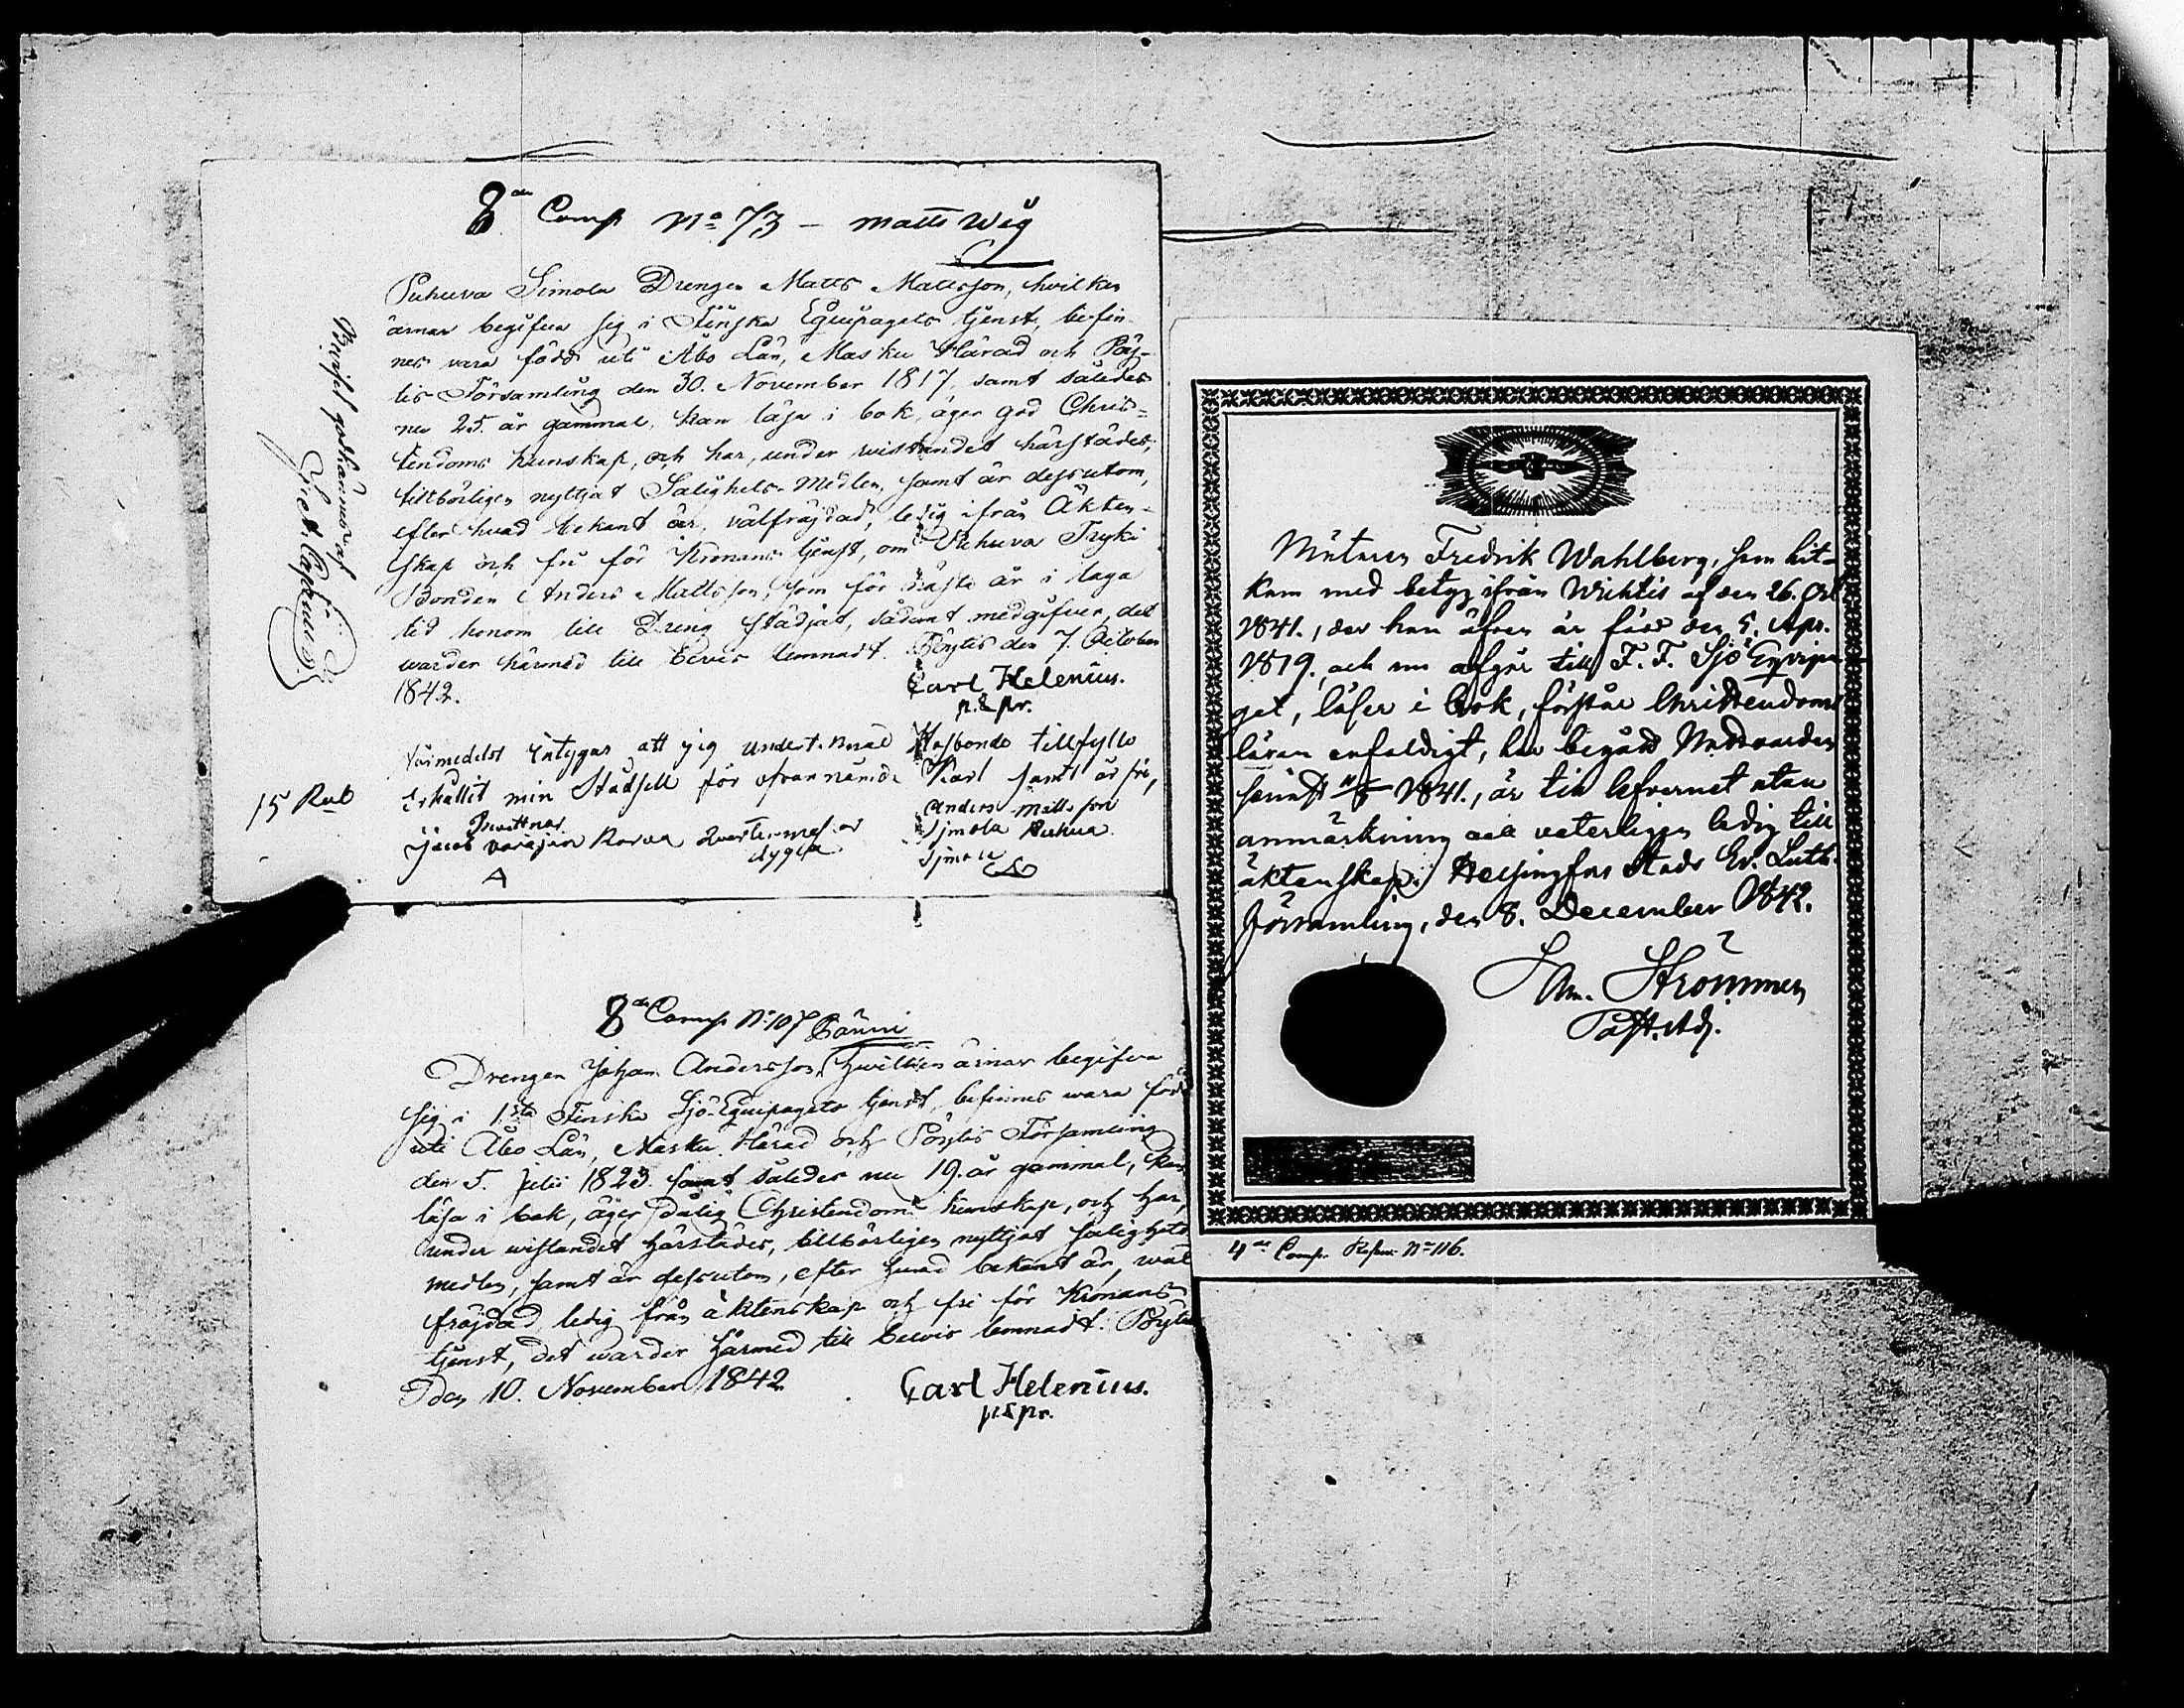 8de Comp No 73 – Matts Wig
Puhuva Simola Drengen Matts Mattsson, hvilken
ärnar begifva sig i Finska Equipagets tjenst, befin-
nes vara född uti Åbo Län, Masku Härad och Pöy-
tis Församling den 30. November 1817, samt således
nu 25. år gammal, kan läsa i bok, äger god Chris=
tendoms kunskap, och har, under vistandet härstädes,
tillbörligen nyttjat Salighets-Medlen, samt är dessutom,
efter hvad bekant är, välfräjdad, ledig ifrån Äkten-
skap och fri för Kronans tjenst, om Puhuva Tryki
Bonden Anders Mattsson, som för nästa år i laga
tid honom till Dreng städjat, sådant medgifver, det
warder härmed till bevis lemnadt. Pöytis den 7. October
1842.
Carl Helenius.
p. & pr.
Härmedelst intygas att jag undert. Husbonde tillfyllo
Erhållit min Städsell för ofvannämde Karl samt är fri,
Anders Matts son
Simola Puhua
Simola
15 Rub
Bevittnar
Jacob
A
Beviset godkännes af
Fict. Capenius
8de Comp No 107 Bänni
Drengen Johan Andersson, hvilken ärnar begifva
sig i 1sta Finska Sjö-Equipagets tjenst, befinnes vara född
uti Åbo Län, Masku Härad och Pöytis Församling
den 5. Julii 1823. samt således nu 19. år gammal, kan
läsa i bok, äger dålig Christendoms kunskap, och har,
under vistandet härstädes, tillbörligen nyttjat salighets
medlen, samt är dessutom, efter hvad bekant är, wäl
fräjdad, ledig från äktenskap och fri för Kronans
tjenst, det warder härmed till bewis lemnadt. Pöytis
den 10. November 1842
Carl Helenius.
p. & pr.
Fredrik Wahlberg, som hit-
kom med betyg ifrån Wichtis af den 26. Oct
1841., der han äfven är född den 5. Apr.
1819., och nu afgår till F. F. Sjö Eqvipa
get, läser i bok, förstår Christendoms
läran enfaldigt, har begått Nattvarden
senast 1841., är till lefvernet utan
anmärkning och veterligen ledig till
äktenskap. Helsingfors Stads Ev. Luth.
Församling, den 8. December 1842.
Strömmer
Past. Adj.
4de Comp. No 116.